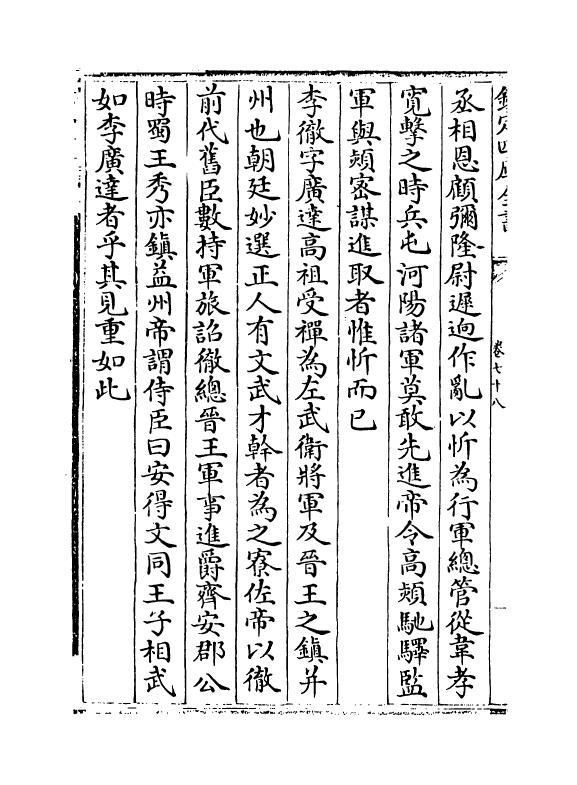 欽定四庫全書
卷七十八
丞相恩顧彌隆尉遲逈作亂以忻為行軍總管從韋孝
寛擊之時兵屯河陽諸軍莫敢先進帝令高熲馳驛監
軍與熲宻謀進取者惟忻而已
李徹字廣達髙祖受禪為左武衛將軍及晉王之鎮并
州也朝廷妙選正人有文武才幹者為之寮佐帝以徹
前代舊臣數持軍旅詔徹總晉王軍事進爵齊安郡公
時蜀王秀亦鎮益州帝謂侍臣曰安得文同王子相武
如李廣達者乎其見重如此